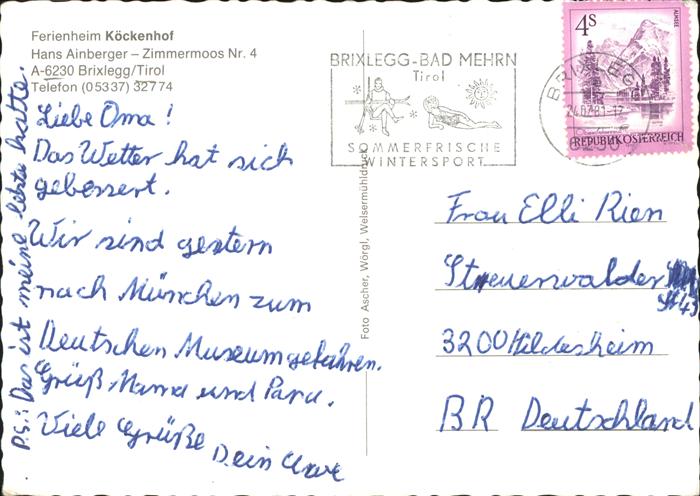 Ferienheim Köckenhof
Hans Ainberger – Zimmermoos Nr. 4
A-6230 Brixlegg/Tirol
Telefon (05337) 32774
Liebe Oma!
Das Wetter hat sich
gebessert.
Wir sind gestern
nach München zum
Deutschen Museum gefahren.
Grüß Mama und Papa.
Viele Grüße
Dein Uwe
P.S.: Das ist meine letzte Karte.
Foto Ascher, Wörgl, Welsermühldruck
BRIXLEGG-BAD MEHRN
Tirol
SOMMERFRISCHE
WINTERSPORT
4S
ALMSEE
REPUBLIK ÖSTERREICH
BRIXLEGG
6230
Frau Elli Rien
Steuerwalder
3200 Hildesheim
BR Deutschland